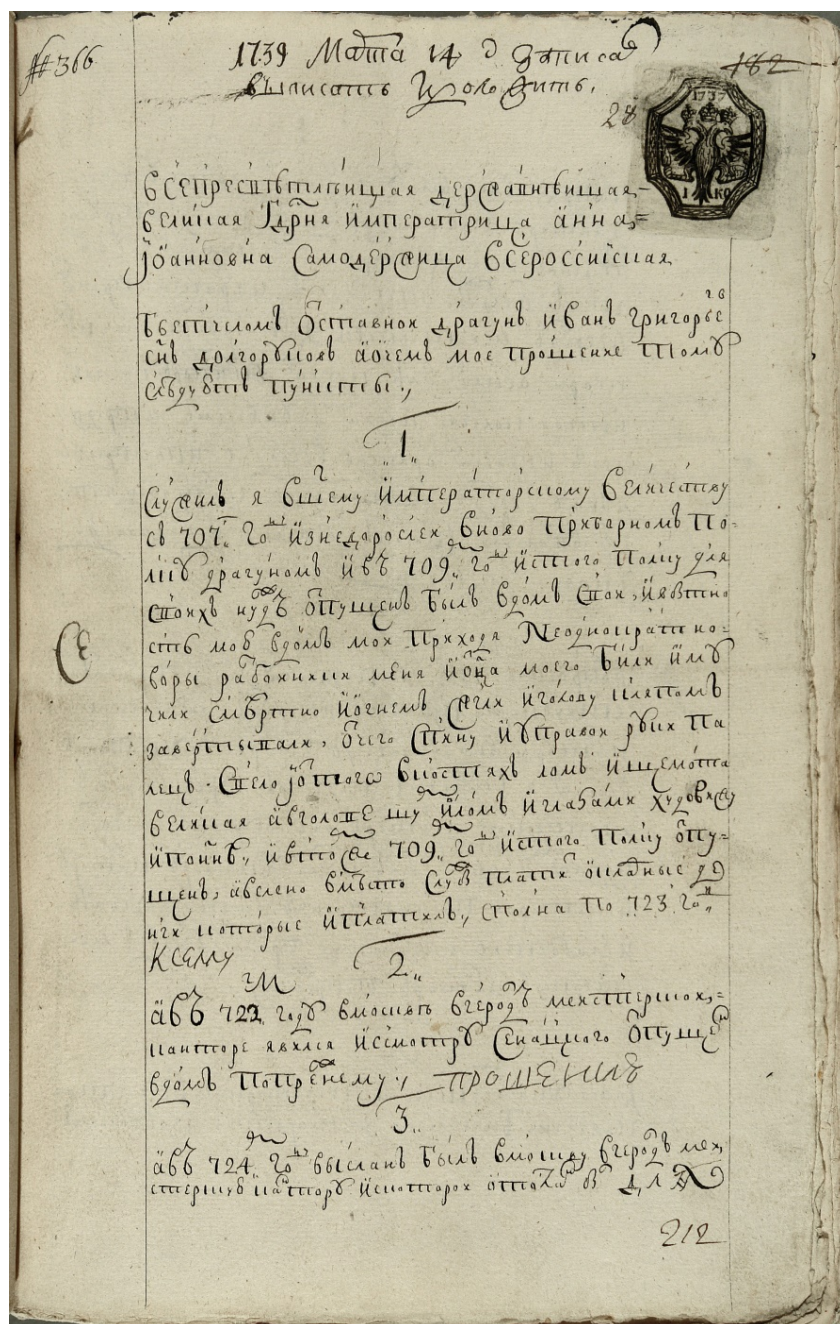 № 366
1739 Марта 14 д записа
выписать и доложить.
182
28
1737
1 КО
Всепресветлейшая державнейшая
великая Гдрня императрица Анна
Иоанновна Самодержица Всероссииская
бьетчелом отставнои драгунъ иванъ григорьевъ
снъ долгоруковъ аочемъ мое прошение тому
следуютъ пункты
1
Служилъ я вшему императорскому величеству
съ 707 го изнедорослеи вново приборномъ по
лку драгуномъ ивъ 709 го истого полку для
своихъ нуждъ отпущенъ былъ вдомъ свои, ивбытно
сть мою вдомъ мои приходя неоднократно
воры разбоиники меня иотца моего били иму
чили смертно иогнемъ жгли иголову кляпомъ
завертывали, отчего спину иуправои руки па
лецъ иоттого вкостяхъ ломъ ищемота
великая авголове шумъ иломъ иглазами худовижу
ивтоже 709 го истого полку отпу
щенъ, авелено вместо службы платить окладные де
нги которые иплатилъ, сполна по 723 го
Ксему
2
авъ 723 году вмоскве вгерольдмеистерскои
канторе явился иссмотру Сенацкого отпущен
вдомъ попрежнему, прошению
3
авъ 724 го высланъ былъ вмоскву вгерольдмеи
стерскую кантору искоторои для
212